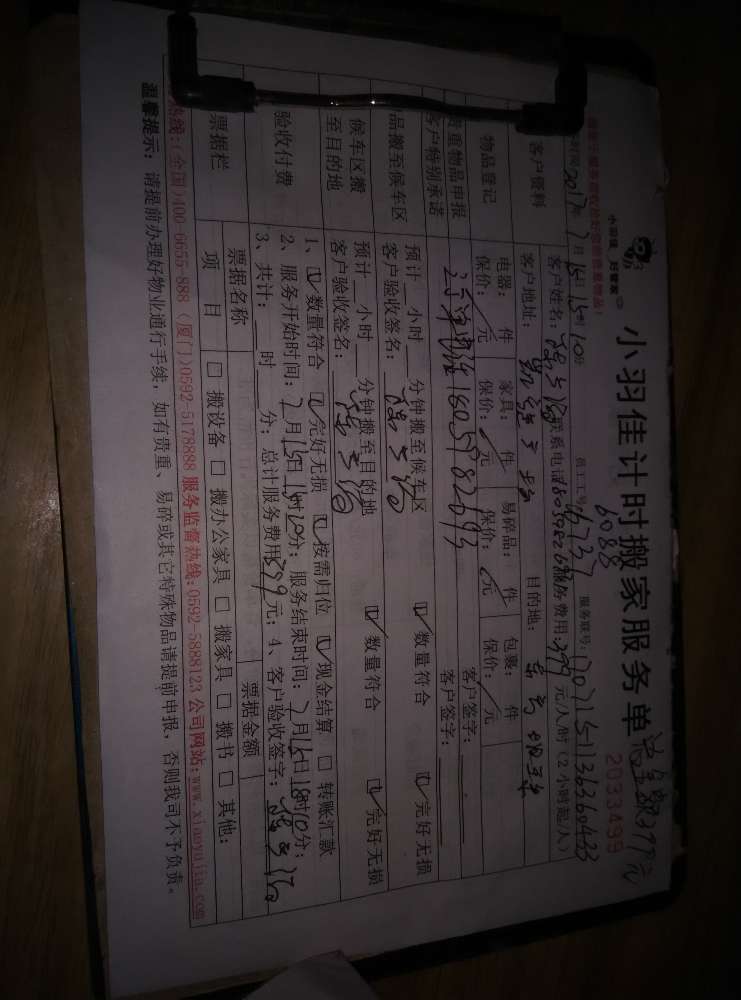 小羽佳 好管家
小羽佳计时搬家服务单
2033499
6088
2017年7月15日15时10分 员工工号: 6737 服务联号:
客户资料
客户姓名: 联系电话: 服务费用: 379元/人/时(2小时起/人)
客户地址: 目的地:
物品登记
电器: 件 家具: 件 易碎品: 件 包裹: 件
保价: 元 保价: 元 保价: 元 保价: 元
贵重物品申报 客户签字:
客户特别承诺 18059782693 客户签字:
品搬至候车区
预计 小时 分钟搬至候车区 数量符合 完好无损
客户验收签名:
候车区搬至目的地
预计 小时 分钟搬至目的地 数量符合 完好无损
客户验收签名:
验收付费
1、数量符合 完好无损 按需归位 现金结算 □ 转账汇款
2、服务开始时间: 7月15日15时10分; 服务结束时间: 7月15日18时10分;
3、共计: 时 分; 总计服务费用379元; 4、客户验收签字:
票据栏
票据名称 票据金额
项目 □ 搬设备 □ 搬办公家具 □ 搬家具 □ 搬书 □ 其他:
热线:(全国)400-6655-888 (厦门)0592-5178888 服务监督热线: 0592-5888123 公司网站: www.xiaoyujia.com
温馨提示: 请提前办理好物业通行手续, 如有贵重、易碎或其它特殊物品请提前申报, 否则我司不予负责。